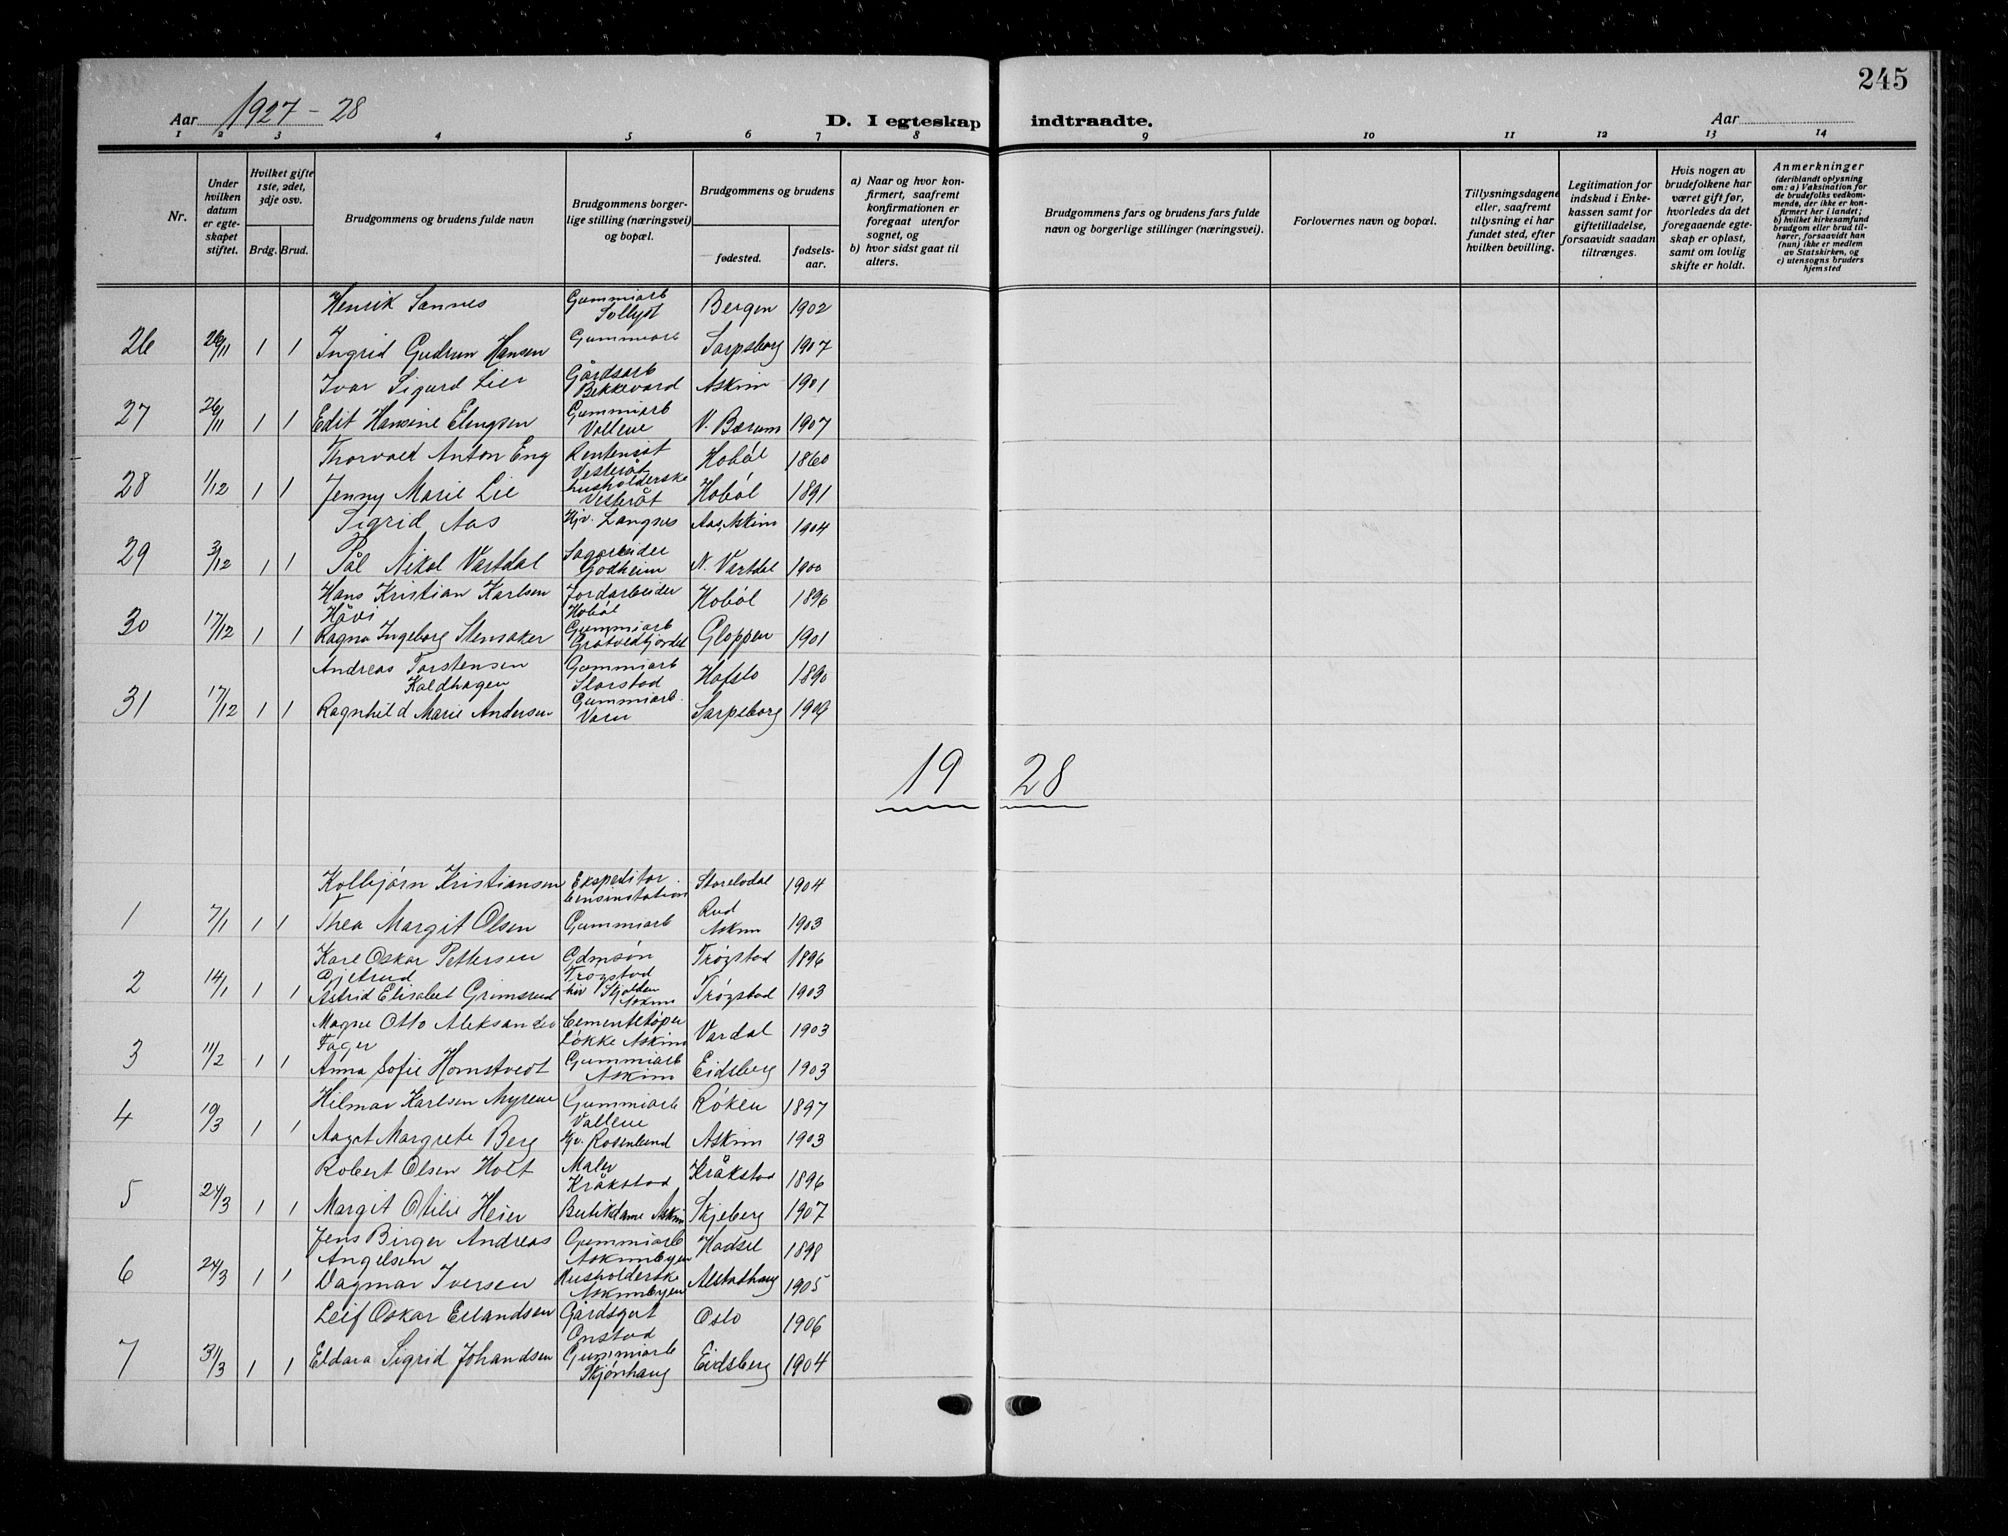 245
Aar 1927 - 28
D. I egteskap indtraadte.
Aar
1 2 3 4 5 6 7 8 9 10 11 12 13 14
Nr.
Under hvilken datum er egteskapet stiftet.
Hvilket gifte 1ste, 2det, 3dje osv.
Brdg. Brud.
Brudgommens og brudens fulde navn
Brudgommens borgerlige stilling (næringsvei) og bopæl.
Brudgommens og brudens
fødested.
fødselsaar.
a) Naar og hvor konfirmert, saafremt konfirmationen er foregaat utenfor sognet, og
b) hvor sidst gaat til alters.
Brudgommens fars og brudens fars fulde navn og borgerlige stillinger (næringsvei).
Forlovernes navn og bopæl.
Tillysningsdagene eller, saafremt tillysning ei har fundet sted, efter hvilken bevilling.
Legitimation for indskud i Enkekassen samt for giftetilladelse, forsaavidt saadan tiltrænges.
Hvis nogen av brudefolkene har været gift før, hvorledes da det foregaaende egteskap er opløst, samt om lovlig skifte er holdt.
Anmerkninger
(deriblandt oplysning om: a) Vaksination for de brudefolks vedkommende, der ikke er konfirmert her i landet; b) hvilket kirkesamfund brudgom eller brud tilhører, forsaavidt han (hun) ikke er medlem av Statskirken, og c) utensogns bruders hjemsted
Henrik Sannes Gummiarb Sollyst Bergen 1902
26 26/11 1 1 Ingrid Gudrun Hansen Gummiarb Sarpsborg 1907
Ivar Sigurd Lier Gårdsarb Bekkevard Askim 1901
27 26/11 1 1 Edit Hansine Elingsen Gummiarb Vollene V. Bærum 1907
Thorvald Anton Eng Rentenist Vesteråt Hobøl 1860
28 1/12 1 1 Jenny Marie Lie husholderske Vesteråt Hobøl 1891
Sigrid Aas Hjv. Langnes Aas, Askim 1904
29 3/12 1 1 Pål Nikol Vartdal Sagarbeider Godheim N. Vartdal 1900
Hans Kristian Karlsen Jordarbeider Hobøl 1896
Håvi Hobøl
30 17/12 1 1 Ragna Ingeborg Stensaker Gummiarb Grøtvedtjordet Gloppen 1901
Andreas Torstensen Gummiarb Hafslo 1890
Kaldhagen Storstad
31 17/12 1 1 Ragnhild Marie Andersen Gummiarb. Sarpsborg 1909
19 28
Kolbjørn Kristiansen Ekspeditør bensinstation Storelvdal 1904
1 7/1 1 1 Thea Margit Olsen Gummiarb Rud Askim 1903
Kare Oskar Pettersen Gdmsøn Trøgstad 1896
Gjetrud Trøgstad
2 14/1 1 1 Astrid Elisabet Grimsrud hjv Skjolden Askim Trøgstad 1903
Magne Otto Aleksander Cementstøper Vardal 1903
Fager Løkke Askim
3 11/2 1 1 Anna Sofie Hornstvedt Gummiarb Askim Eidsberg 1903
Hilmar Karlsen Myrene Gummiarb Vollene Røken 1897
4 10/3 1 1 Aagot Margrete Berg Hjv. Rosenlund Askim 1903
Robert Olsen Holt Maler Kråkstad Kråkstad 1896
5 24/3 1 1 Margit Otilie Heier Butikdame Askim Skjeberg 1907
Jens Birger Andreas Gummiarb Hadsel 1898
Angelsen Askimbyen
6 24/3 1 1 Dagmar Iversen Husholderske Askimbyen Alstadhaug 1905
Leif Oskar Erlandsen Gårdsgut Onstad Oslo 1906
7 31/3 1 1 Eldara Sigrid Johandsen Gummiarb Skjønhaug Eidsberg 1904